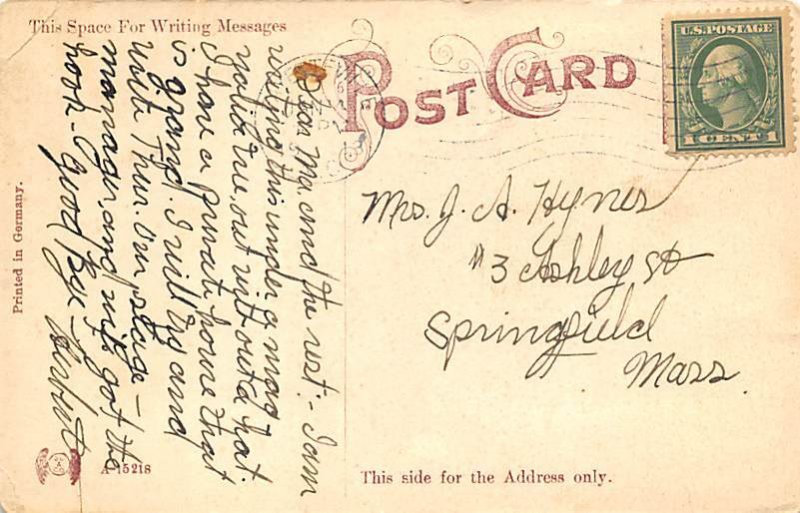 This Space For Writing Messages
POST CARD
U.S. POSTAGE
1 CENT 1
Dear Ma. and the rest:- I am
writing this under a mag
nolia tree, out without a hat.
I have a private house that
is grand. I will try and
write Thur. I'm place-
manager and wife got the
hook- good Bye- Herbert
Mrs. J. A. Hynes
#3 Ashley St
Springfield
Mass.
Printed in Germany.
A-15218
This side for the Address only.